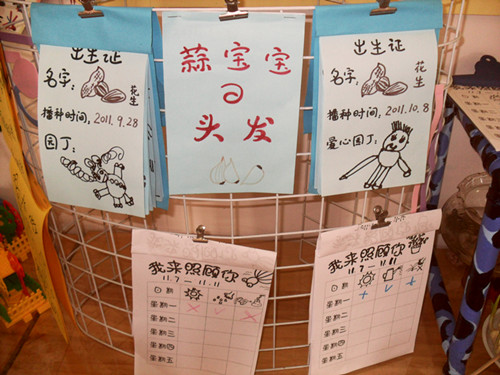 出生证
名字:
花生
播种时间,2011.9.28
园丁:
蒜宝宝
の
头发
出生证
名字:
花生
播种时间,2011.10.8
爱心园丁:
我来照顾你
11.7—11.11
日期
星期一
星期二
星期三
星期四
星期五
我来照顾你
11.7—11.11
日期
星期一
星期二
星期三
星期四
星期五